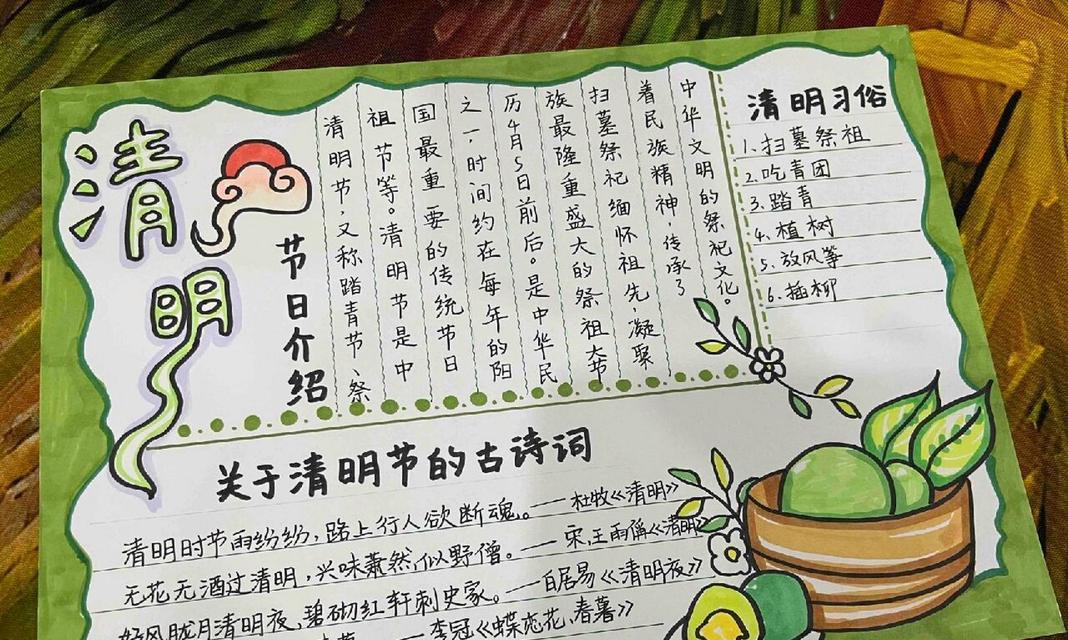 清明
节日介绍
清明节,又称踏青节、祭
祖节等。清明节是中
国最重要的传统节日
之一,时间约在每年的阳
历4月5日前后。是中华民
族最隆重盛大的祭祖大节
扫墓祭祀缅怀祖先,凝聚
着民族精神,传承了
中华文明的祭祀文化。
清明习俗
1.扫墓祭祖
2.吃青团
3.踏青
4.植树
5.放风筝
6.插柳
关于清明节的古诗词
清明时节雨纷纷,路上行人欲断魂。——杜牧《清明》
无花无酒过清明,兴味萧然,似野僧。——宋,王禹偁《清明》
好风胧月清明夜,碧砌红轩刺史家。——白居易《清明夜》
——李冠《蝶恋花,春暮》